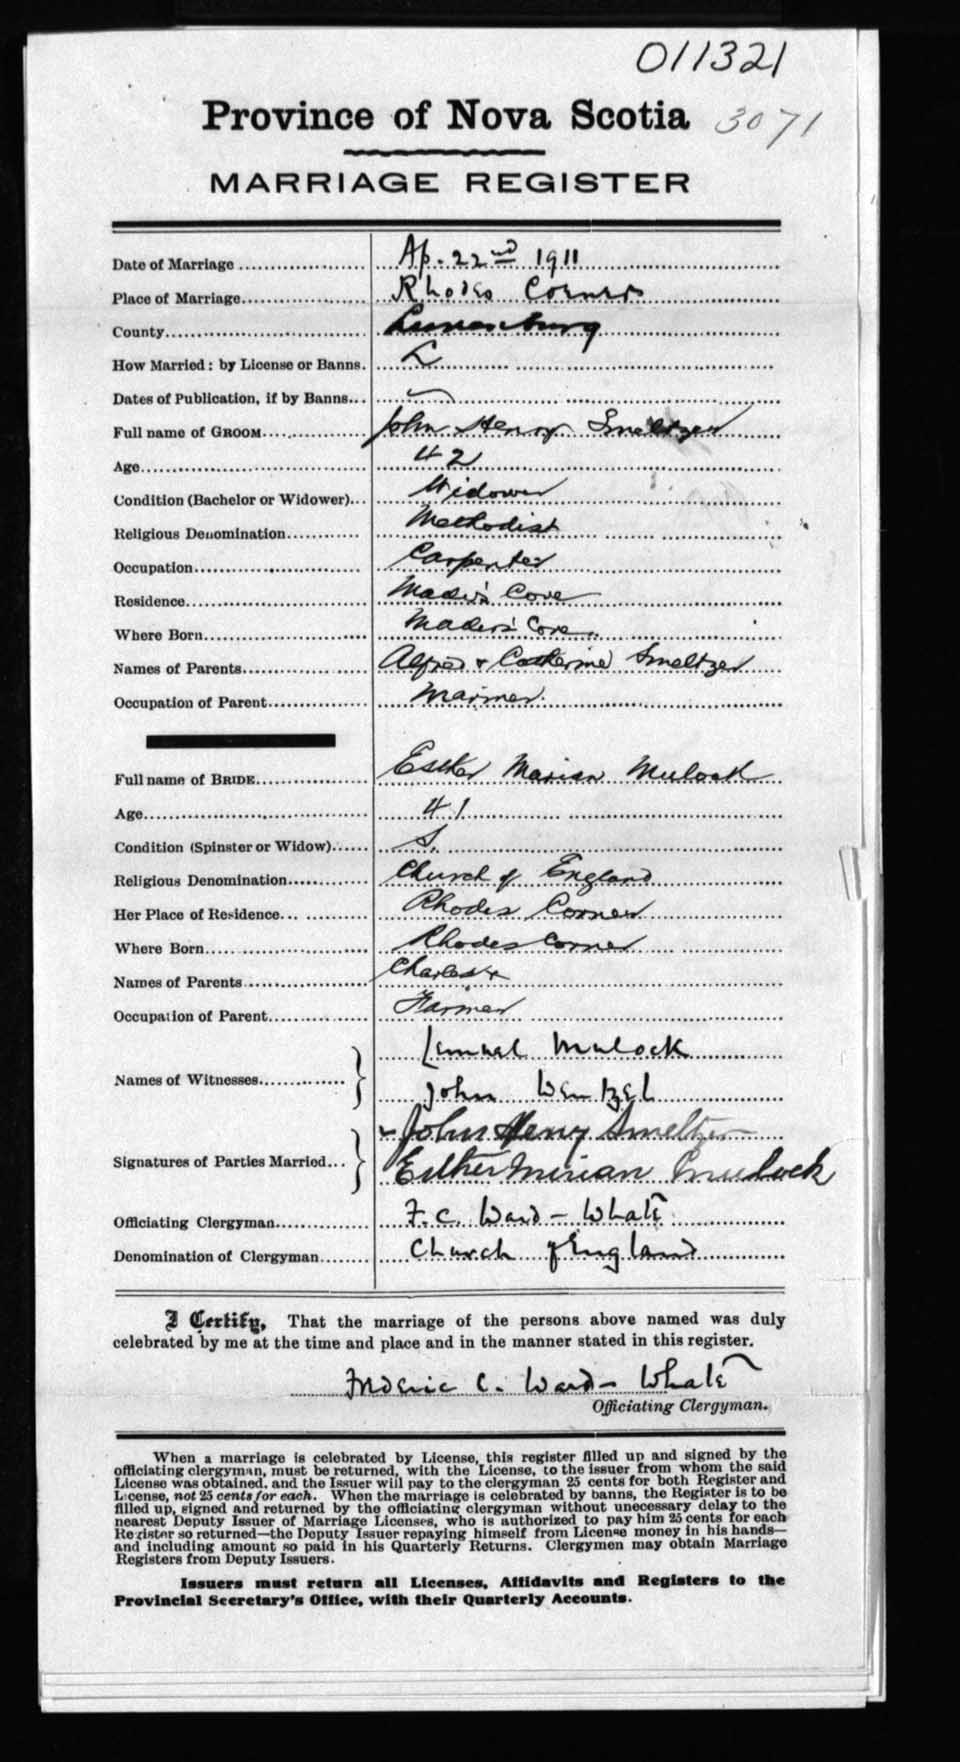 011321
Province of Nova Scotia 3071
MARRIAGE REGISTER
Date of Marriage Ap. 22nd 1911
Place of Marriage Rhodes Corners
County Lunenburg
How Married: by License or Banns. L
Dates of Publication, if by Banns
Full name of GROOM John Henry Smeltzer
Age 42
Condition (Bachelor or Widower) Widower
Religious Denomination Methodist
Occupation Carpenter
Residence Mader's Cove
Where Born Mader's Cove
Names of Parents Alfred & Catherine Smeltzer
Occupation of Parent Mariner
Full name of BRIDE Esther Marian Mulock
Age 41
Condition (Spinster or Widow) S.
Religious Denomination Church of England
Her Place of Residence Rhodes Corner
Where Born Rhodes Corner
Names of Parents Charles &
Occupation of Parent Farmer
Names of Witnesses Lemuel Mulock
John Wentzel
Signatures of Parties Married John Henry Smeltzer
Esther Mirian Mulock
Officiating Clergyman F. C. Ward-Whate
Denomination of Clergyman Church of England
I Certify, That the marriage of the persons above named was duly
celebrated by me at the time and place and in the manner stated in this register.
Frederic C. Ward-Whate
Officiating Clergyman.
When a marriage is celebrated by License, this register filled up and signed by the
officiating clergyman, must be returned, with the License, to the issuer from whom the said
License was obtained, and the Issuer will pay to the clergyman 25 cents for both Register and
License, not 25 cents for each. When the marriage is celebrated by banns, the Register is to be
filled up, signed and returned by the officiating clergyman without unnecessary delay to the
nearest Deputy Issuer of Marriage Licenses, who is authorized to pay him 25 cents for each
Register so returned—the Deputy Issuer repaying himself from License money in his hands—
and including amount so paid in his Quarterly Returns. Clergymen may obtain Marriage
Registers from Deputy Issuers.
Issuers must return all Licenses, Affidavits and Registers to the
Provincial Secretary's Office, with their Quarterly Accounts.